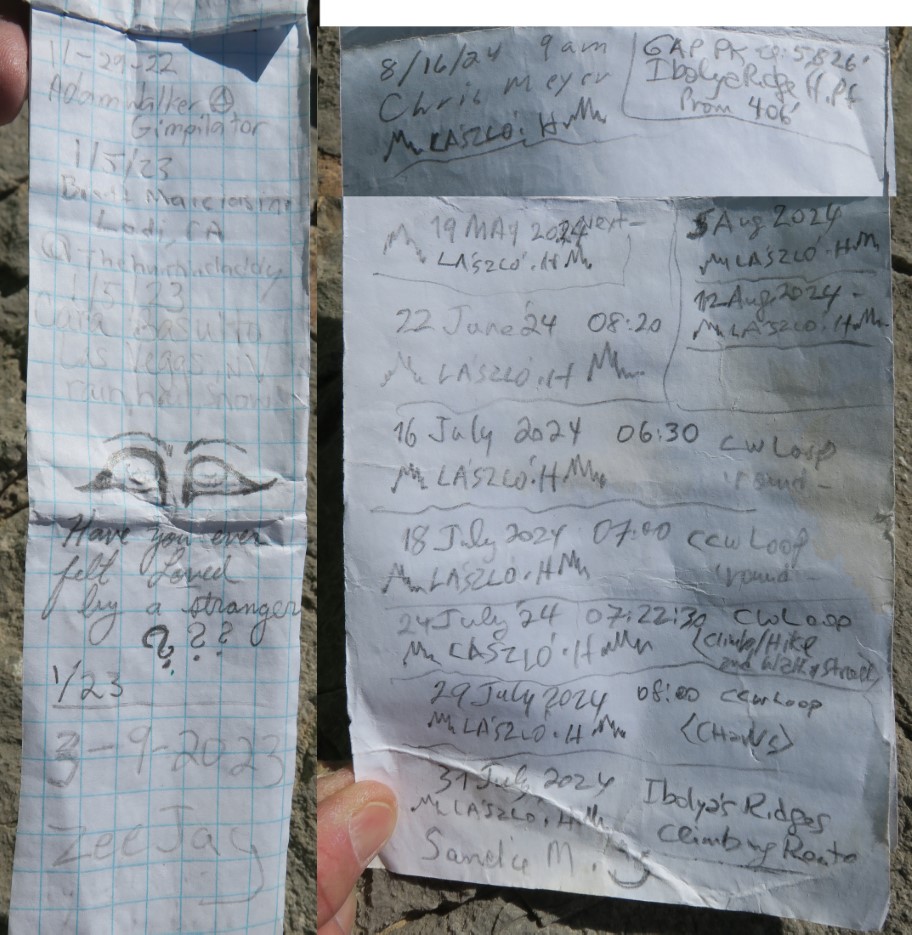 11-29-22
Adam Walker
Gimpilator
1/5/23
Lodi, CA
1/5/23
Las Vegas, NV
rain, hail, snow
Have you ever
felt loved
by a stranger
???
1/23
3-9-2023
ZeeJay
8/16/24 9am
Chris Meyer
LÁSZLÓ.H
GAP PK 5,826'
Ibolya Ridge H.Pt
Prom 406'
19 MAY 2024
LÁSZLÓ.H
5 Aug 2024
LÁSZLÓ.H
12 Aug 2024-
LÁSZLÓ.H
22 June '24 08:20
LÁSZLÓ.H
16 July 2024 06:30 CW Loop
LÁSZLÓ.H 'round-
18 July 2024 07:00 CCW Loop
LÁSZLÓ.H 'round-
24 July '24 07:22:30 CW Loop
LÁSZLÓ.H <Climb/Hike
29 July 2024 08:00 CCW Loop
LÁSZLÓ.H
31 July 2024 Ibolya's Ridges
LÁSZLÓ.H Climbing Route
Sandie M.